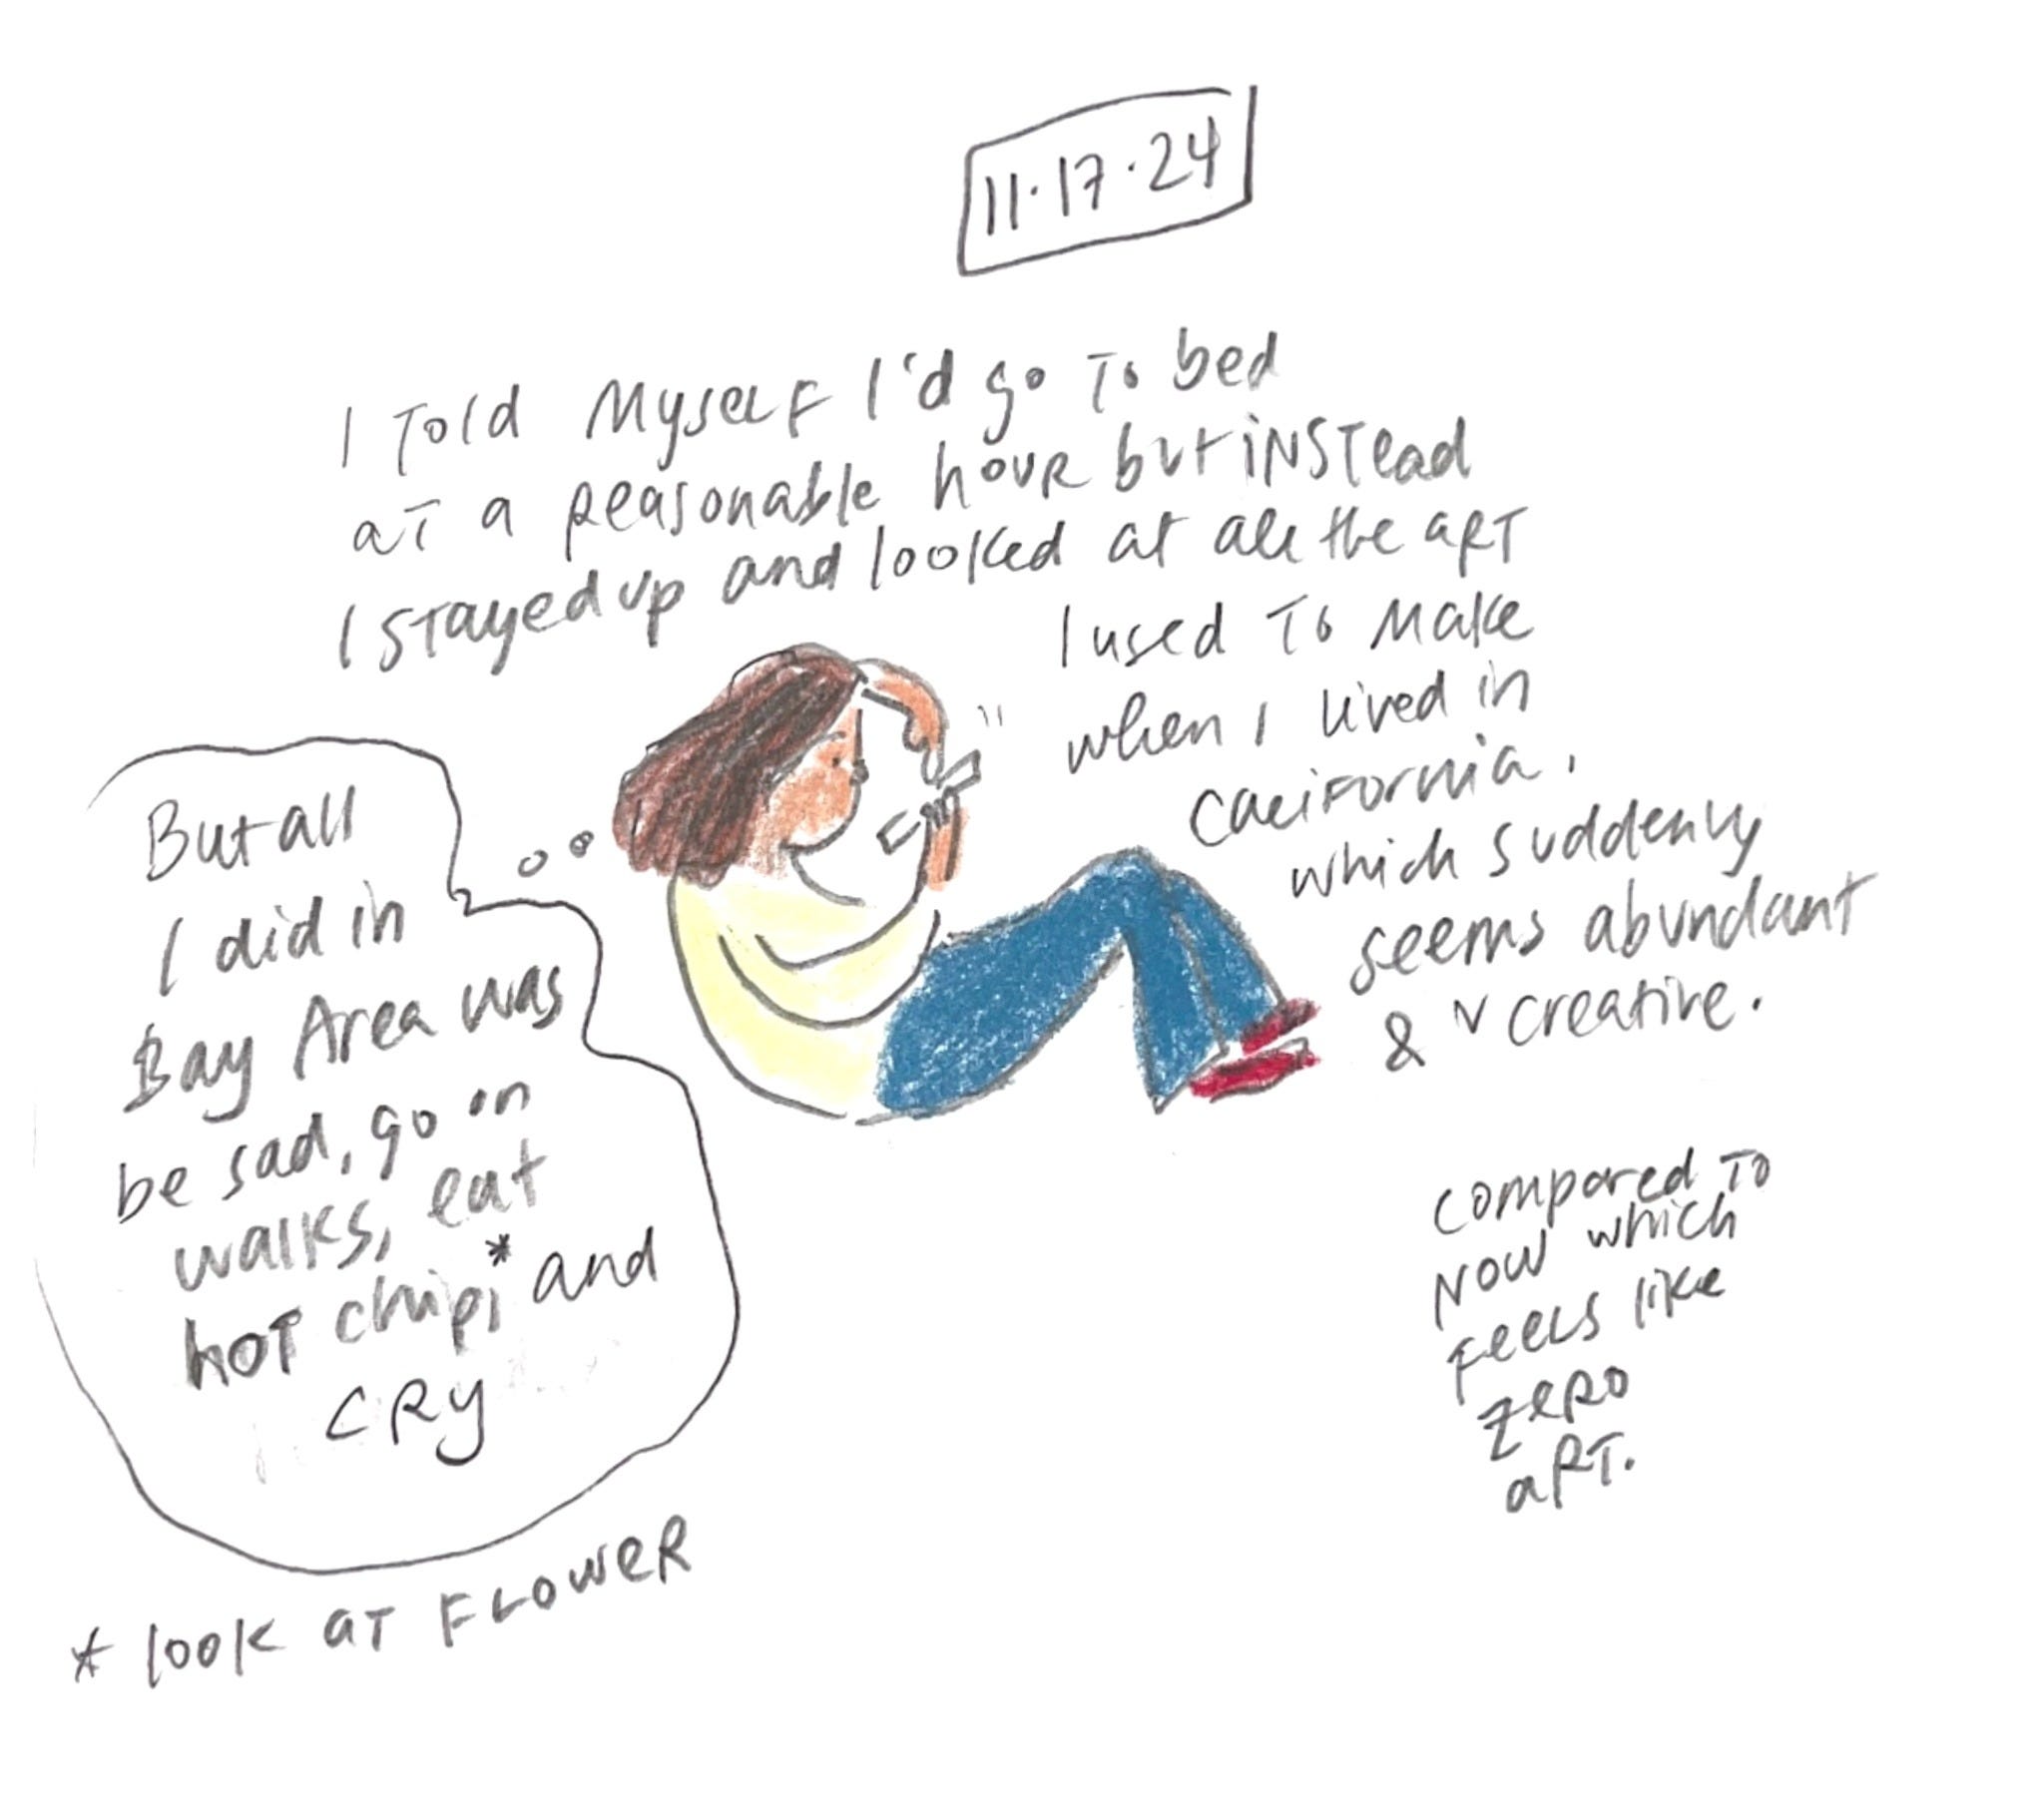 11.17.24
I Told Myself I'd go To bed
at a Reasonable hour but instead
I stayed up and looked at all the art
I used To Make
when I lived in
California.
which suddenly
seems abundant
& v creative.
But all
I did in
Bay Area was
be sad, go on
walks, eat
hot chips* and
cry
compared to
now which
feels like
zero
art.
* look at flower